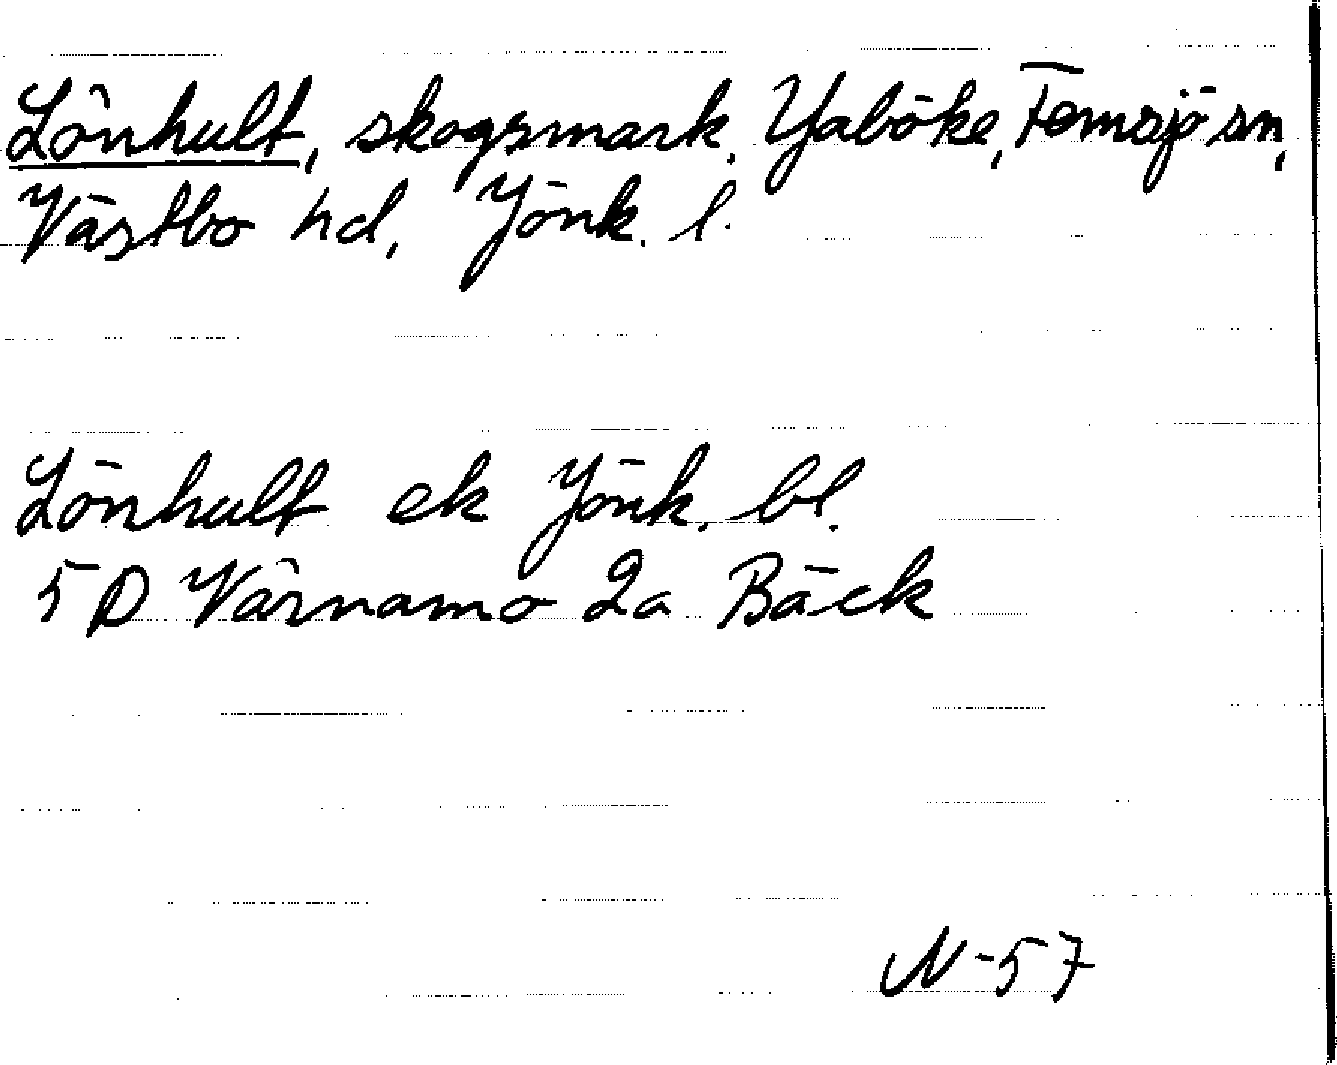 Lönhult, skogsmark, Yaböke, Femsjö sn,
Västbo hd, Jönk. l.
Lönhult ek Jönk. bl.
5D Värnamo 2a Bäck
N-57